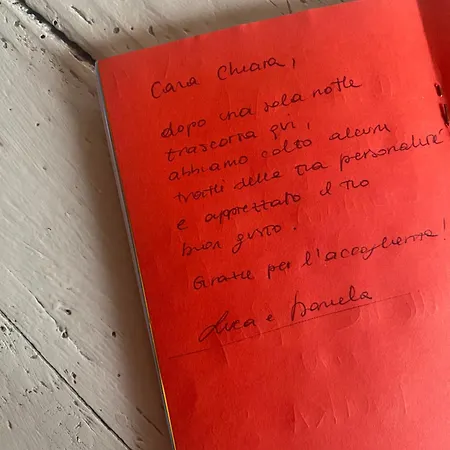 Cara Chiara,
dopo una sola notte
trascorsa qui,
abbiamo colto alcuni
tratti della tua personalità
e apprezzato il tuo
buon gusto.
Grazie per l'accoglienza!
Luca e Daniela